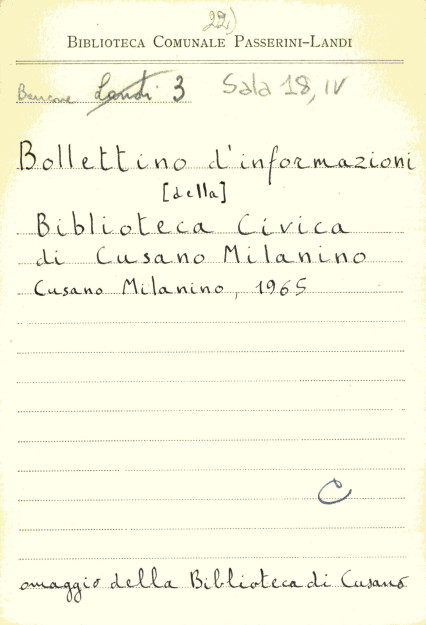 22)
BIBLIOTECA COMUNALE PASSERINI-LANDI
Landi 3 Sala 18, IV
Bollettino d'informazioni
[della]
Biblioteca Civica
di Cusano Milanino
Cusano Milanino, 1965
C
omaggio della Biblioteca di Cusano